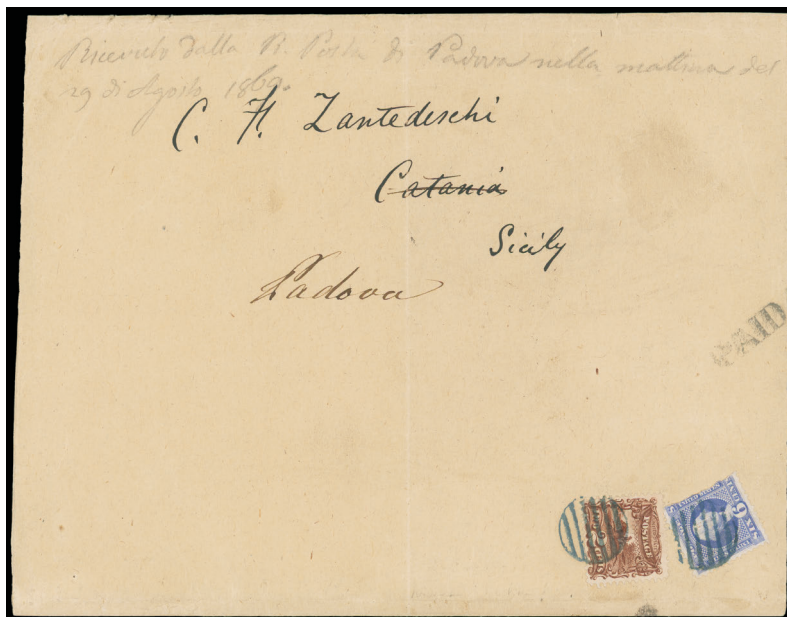 Ricevuto dalla R. Posta di Padova nella mattina del
29 di Agosto 1869.
C. F. Zantedeschi
Catania
Sicily
Padova
PAID
POSTAGE
6